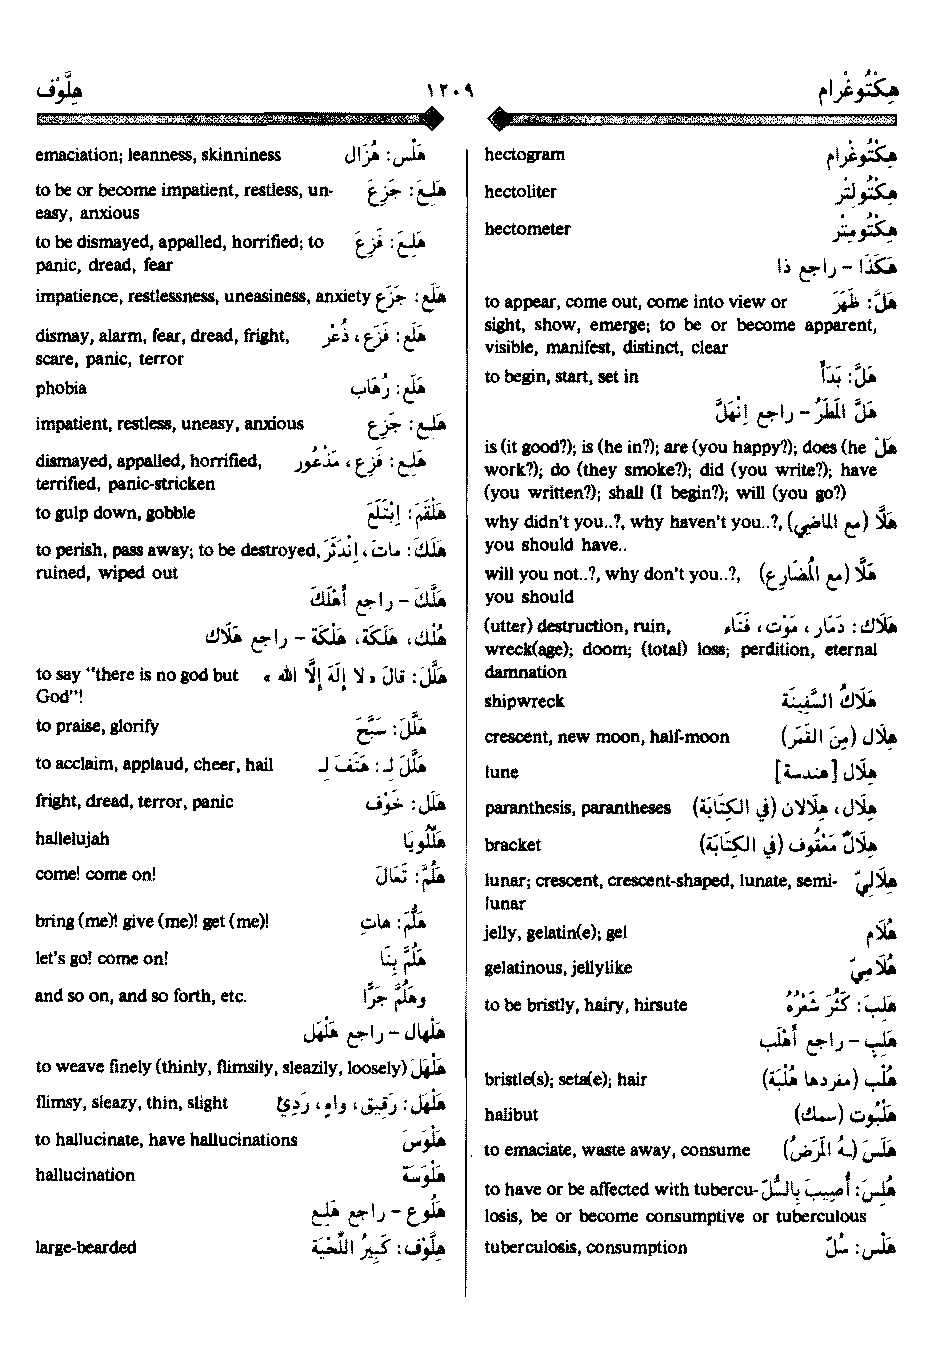 هِكْتُوغْرام ١٢٠٩ هِلَّوْف
هِكْتُوغْرام hectogram
هِكْتُولِتْر hectoliter
هِكْتُومِتْر hectometer
هَكَذَا - راجع ذا
هَلَّ: ظَهَرَ to appear, come out, come into view or
sight, show, emerge; to be or become apparent,
visible, manifest, distinct, clear
هَلَّ: بَدَأَ to begin, start, set in
هَلَّ المَطَرُ - راجع اِنْهَلَّ
هَلْ is (it good?); is (he in?); are (you happy?); does (he
work?); do (they smoke?); did (you write?); have
(you written?); shall (I begin?); will (you go?)
هَلَّا (مع الماضي) why didn't you..?, why haven't you..?,
you should have..
هَلَّا (مع المُضَارِع) will you not..?, why don't you..?,
you should
هَلاك: دَمَار، مَوْت، فَنَاء (utter) destruction, ruin,
wreck(age); doom; (total) loss; perdition, eternal
damnation
هَلاكُ السَّفِينَة shipwreck
هِلال (مِنَ القَمَر) crescent, new moon, half-moon
هِلال [هندسة] lune
هِلال، هِلالان (في الكِتَابَة) paranthesis, parantheses
هِلالٌ مَعْقُوف (في الكِتَابَة) bracket
هِلالِيّ lunar; crescent, crescent-shaped, lunate, semi-
lunar
هُلَام jelly, gelatin(e); gel
هُلَامِيّ gelatinous, jellylike
هَلِبَ: كَثُرَ شَعْرُهُ to be bristly, hairy, hirsute
هَلِب - راجع أَهْلَب
هُلْب (مفردها هُلْبَة) bristle(s); seta(e); hair
هَلْبُوت (سمك) halibut
هَلَسَ (ـهُ المَرَضُ) to emaciate, waste away, consume
هُلِسَ: أُصِيبَ بِالسُّلّ to have or be affected with tubercu-
losis, be or become consumptive or tuberculous
هَلْس: سُلّ tuberculosis, consumption
هَلْس: هُزَال emaciation; leanness, skinniness
هَلِعَ: جَزِعَ to be or become impatient, restless, un-
easy, anxious
هَلِعَ: فَزِعَ to be dismayed, appalled, horrified; to
panic, dread, fear
هَلَع: جَزَع impatience, restlessness, uneasiness, anxiety
هَلَع: فَزَع، ذُعْر dismay, alarm, fear, dread, fright,
scare, panic, terror
هَلَع: رُهَاب phobia
هَلِع: جَزِع impatient, restless, uneasy, anxious
هَلِع: فَزِع، مَذْعُور dismayed, appalled, horrified,
terrified, panic-stricken
هَلْقَمَ: اِبْتَلَعَ to gulp down, gobble
هَلَكَ: ماتَ، اِنْدَثَرَ to perish, pass away; to be destroyed,
ruined, wiped out
هَلَّكَ - راجع أَهْلَكَ
هُلْك، هَلَكَة، هَلْكَة - راجع هَلَاك
هَلَّلَ: قالَ «لا إِلَهَ إِلَّا الله» to say "there is no god but
God"!
هَلَّلَ: سَبَّحَ to praise, glorify
هَلَّلَ لِـ: هَتَفَ لِـ to acclaim, applaud, cheer, hail
هَلَل: خَوْف fright, dread, terror, panic
هَلِّلُويَا hallelujah
هَلُمَّ: تَعَالَ come! come on!
هَلُمَّ: هاتِ bring (me)! give (me)! get (me)!
هَلُمَّ بِنَا let's go! come on!
وهَلُمَّ جَرًّا and so on, and so forth, etc.
هَلْهال - راجع هَلْهَل
هَلْهَلَ to weave finely (thinly, flimsily, sleazily, loosely)
هَلْهَل: رَقِيق، واهٍ، رَدِيْ flimsy, sleazy, thin, slight
هَلْوَسَ to hallucinate, have hallucinations
هَلْوَسَة hallucination
هَلُوع - راجع هَلِع
هِلَّوْف: كَبِيرُ اللِّحْيَة large-bearded